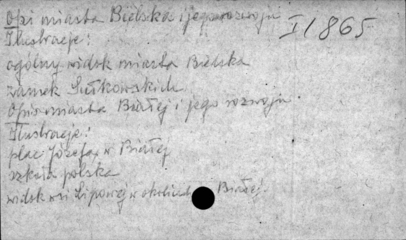 Opis miasta Bielska i jego rozwoju
I/865
Ilustracje:
ogólny widok miasta Bielska
zamek Sułkowskich
Opis miasta Białej i jego rozwoju.
Ilustracje:
plac Józefa w Białej
szkoła polska
widok wsi Lipowej w okolicach Białej.